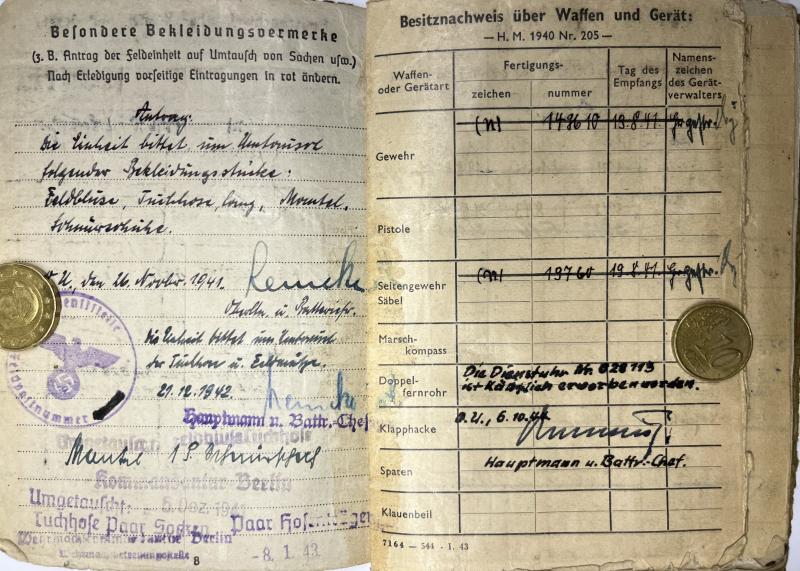 Besondere Bekleidungsvermerke
(z. B. Antrag der Feldeinheit auf Umtausch von Sachen usw.)
Nach Erledigung vorseitige Eintragungen in rot ändern.
Antrag.
Die Einheit bittet um Umtausch
folgender Bekleidungsstücke:
Feldbluse, Tuchhose, lang, Mantel,
Schnürschuhe.
O.U., den 26. Novbr. 1941.
Oberltn. u. Batterieführ.
Die Einheit bittet um Umtausch
der Tuchhose u. Feldmütze.
21.12.1942.
Feldpostnummer
Hauptmann u. Battr.-Chef
Mantel 1 P. Schnürschuh
Kommandantur Berlin
Umgetauscht: 5. Dez. 1941
Tuchhose Paar Socken Paar Hosenträger
Berlin
- 8. 1. 43
8
Besitznachweis über Waffen und Gerät:
— H. M. 1940 Nr. 205 —
Waffen- oder Gerätart
Fertigungs-
zeichen
nummer
Tag des Empfangs
Namenszeichen des Gerätverwalters
Gewehr (n) 14 3610 19.8.41.
Pistole
Seitengewehr Säbel (n) 13760 19.8.41.
Marschkompass
Doppelfernrohr
Die Dienstuhr Nr. 628113
ist käuflich erworben worden.
Klapphacke
O.U., 6.10.44
Spaten
Hauptmann u. Battr.-Chef.
Klauenbeil
7164 — 544 - I. 43